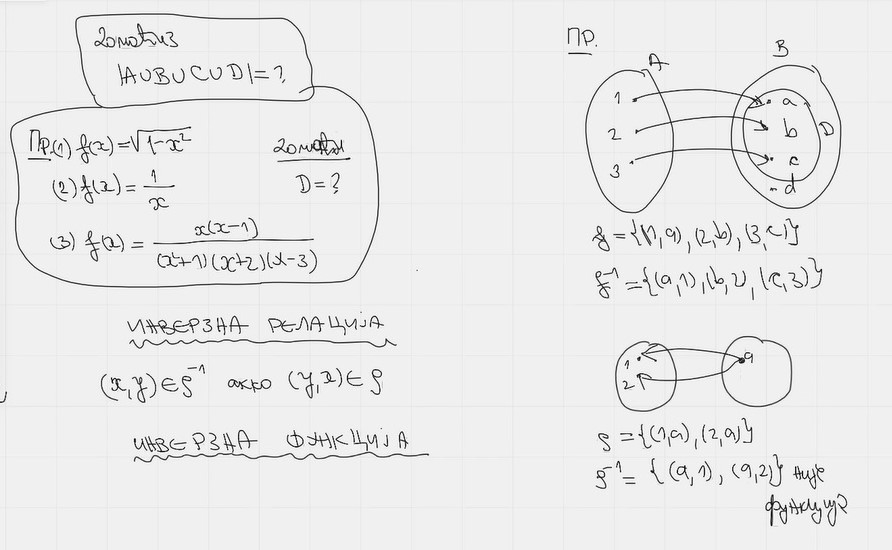 Zоmаtиз
|A∪B∪C∪D|=?
ПР.(1) f(x)=√1-x²
(2) f(x)=1/x
(3) f(x)=x(x-1)/(x²+1)(x+2)(x-3)
D=?
ИНВЕРЗНА РЕЛАЦИЈА
(x,y)∈ρ⁻¹ акко (y,x)∈ρ
ИНВЕРЗНА ФУНКЦИЈА
ПР.
A
B
1
2
3
a
b
c
d
D
f={(1,a),(2,b),(3,c)}
f⁻¹={(a,1),(b,2),(c,3)}
1
2
a
ρ={(1,a),(2,a)}
ρ⁻¹={(a,1),(a,2)} није
функција